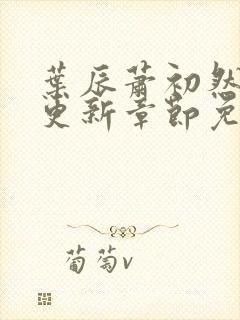 葉辰蕭初然
更新章節免
葡萄v